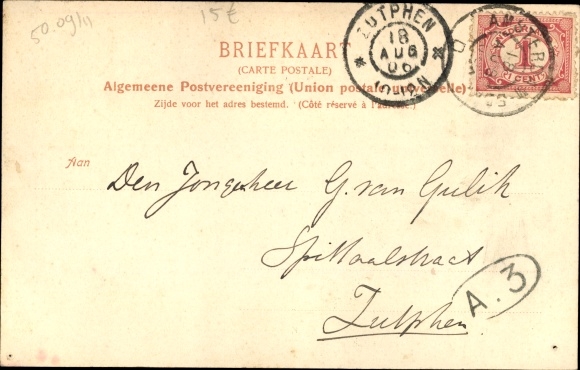 50.09/11
15€
BRIEFKAART
(CARTE POSTALE)
Algemeene Postvereeniging (Union postale universelle)
Zijde voor het adres bestemd. (Côté réservé à l'adresse)
ZUTPHEN
18
AUG
00
AMSTER
1
CENT
Aan
Den Jongeheer G. van Gulik
Spittaalstraat
Zutphen
A.3